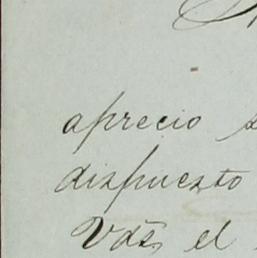 aprecio
dispuesto
Vdes el